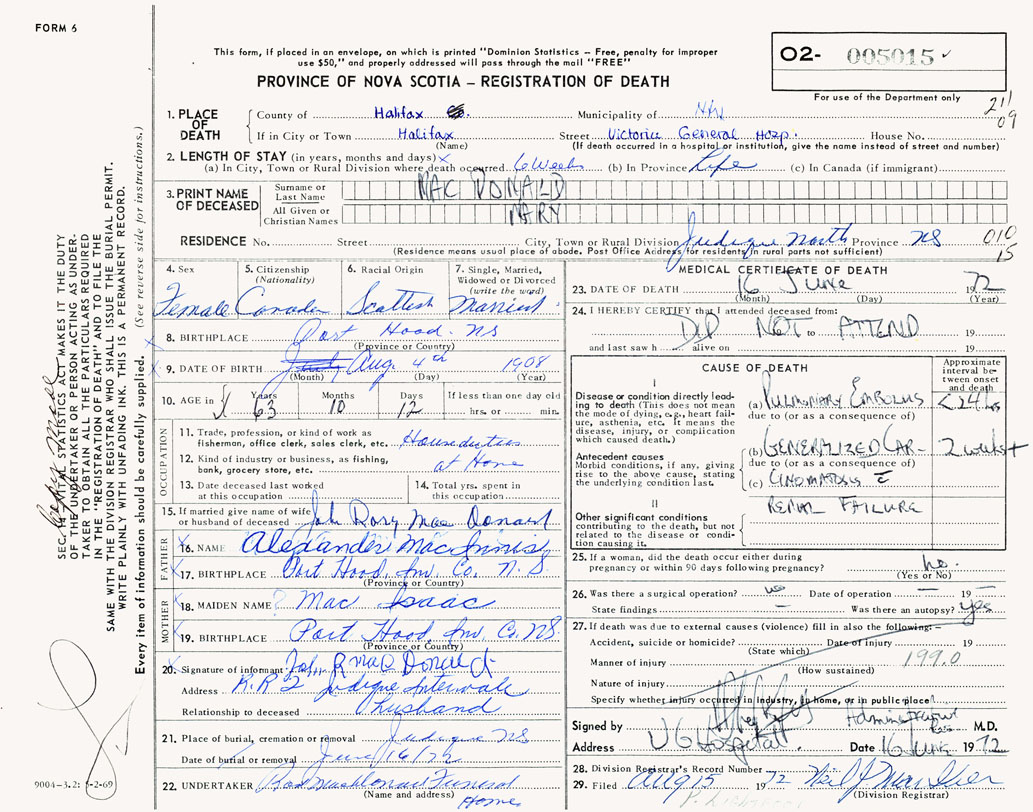 FORM 6
This form, if placed in an envelope, on which is printed "Dominion Statistics – Free, penalty for improper
use $50," and properly addressed will pass through the mail "FREE"
PROVINCE OF NOVA SCOTIA – REGISTRATION OF DEATH
O2- 005015
For use of the Department only
211
09
1. PLACE OF DEATH
County of Halifax Municipality of
If in City or Town Halifax Street Victoria General Hosp. House No.
(Name) (If death occurred in a hospital or institution, give the name instead of street and number)
2. LENGTH OF STAY (in years, months and days)
(a) In City, Town or Rural Division where death occurred 6 Weeks (b) In Province Life (c) In Canada (if immigrant)
3. PRINT NAME OF DECEASED
Surname or Last Name MAC DONALD
All Given or Christian Names MARY
RESIDENCE No. Street City, Town or Rural Division Judique North Province NS
(Residence means usual place of abode. Post Office Address for residents in rural parts not sufficient)
010
15
4. Sex Female
5. Citizenship (Nationality) Canada
6. Racial Origin Scottish
7. Single, Married, Widowed or Divorced (write the word) Married
8. BIRTHPLACE Port Hood NS
(Province or Country)
9. DATE OF BIRTH Aug. 4th 1908
(Month) (Day) (Year)
10. AGE in Years 63 Months 10 Days 12 If less than one day old
hrs. or min.
OCCUPATION
11. Trade, profession, or kind of work as
fisherman, office clerk, sales clerk, etc. Houseduties
12. Kind of industry or business, as fishing,
bank, grocery store, etc. at Home
13. Date deceased last worked
at this occupation
14. Total yrs. spent in
this occupation
15. If married give name of wife
or husband of deceased John Rory Mac Donald
FATHER
16. NAME Alexander MacInnis
17. BIRTHPLACE Port Hood, Inv. Co. N.S.
(Province or Country)
MOTHER
18. MAIDEN NAME Mac Isaac
19. BIRTHPLACE Port Hood, Inv. Co. NS.
(Province or Country)
20. Signature of informant John R Mac Donald
Address R.R 2 Judique Intervale
Relationship to deceased husband
21. Place of burial, cremation or removal Judique NS
Date of burial or removal June/16/72
22. UNDERTAKER Funeral
(Name and address) Home
MEDICAL CERTIFICATE OF DEATH
23. DATE OF DEATH 16 June 1972
(Month) (Day) (Year)
24. I HEREBY CERTIFY that I attended deceased from:
DID NOT to ATTEND 19
and last saw h alive on 19
CAUSE OF DEATH
Approximate interval between onset and death
I
Disease or condition directly leading to death (This does not mean the mode of dying, e.g., heart failure, asthenia, etc. It means the disease, injury, or complication which caused death.)
(a) PULMONARY EMBOLUS <24 hrs
due to (or as a consequence of)
Antecedent causes
Morbid conditions, if any, giving rise to the above cause, stating the underlying condition last.
(b) GENERALIZED CAR- 2 weeks+
due to (or as a consequence of)
(c) CINOMATOSIS c̄
II
RENAL FAILURE
Other significant conditions
contributing to the death, but not related to the disease or condition causing it.
25. If a woman, did the death occur either during
pregnancy or within 90 days following pregnancy? no.
(Yes or No)
26. Was there a surgical operation? no Date of operation —
State findings — Was there an autopsy? yes
27. If death was due to external causes (violence) fill in also the following:-
Accident, suicide or homicide? Date of injury 19
(State which)
Manner of injury 199.0
(How sustained)
Nature of injury
Specify whether injury occurred in industry, in home, or in public place
Signed by M.D.
Address VG Hospital Date 16 June 1972
28. Division Registrar's Record Number
29. Filed Aug 15 1972
(Division Registrar)
SEC. 14 VITAL STATISTICS ACT MAKES IT THE DUTY
OF THE UNDERTAKER OR PERSON ACTING AS UNDER-
TAKER TO OBTAIN ALL THE PARTICULARS REQUIRED
IN THE "REGISTRATION OF DEATH" AND TO FILE THE
SAME WITH THE DIVISION REGISTRAR WHO SHALL ISSUE THE BURIAL PERMIT.
WRITE PLAINLY WITH UNFADING INK. THIS IS A PERMANENT RECORD.
Every item of information should be carefully supplied. (See reverse side for instructions.)
9004-3.2: 5-2-69